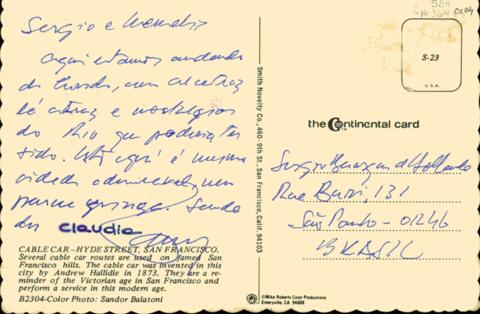 Sergio e
aqui estamos andando
de bonde, com Alcatraz
lá atrás e nostalgias
do Rio que poderia ter
sido. Esta aqui é mesmo
cidade
claudia
CABLE CAR—HYDE STREET, SAN FRANCISCO.
Several cable car routes are used on famed San
Francisco hills. The cable car was invented in this
city by Andrew Hallidie in 1873. They are a re-
minder of the Victorian age in San Francisco and
perform a service in this modern age.
B2304-Color Photo: Sandor Balatoni
Smith Novelty Co., 460-9th St., San Francisco, Calif. 94103
S-23
U.S.A.
the Continental card
Sergio Buarque de Hollanda
Rua Buri, 131
São Paulo - 01246
BRASIL
©Mike Roberts Color Productions
Emeryville, CA 94608